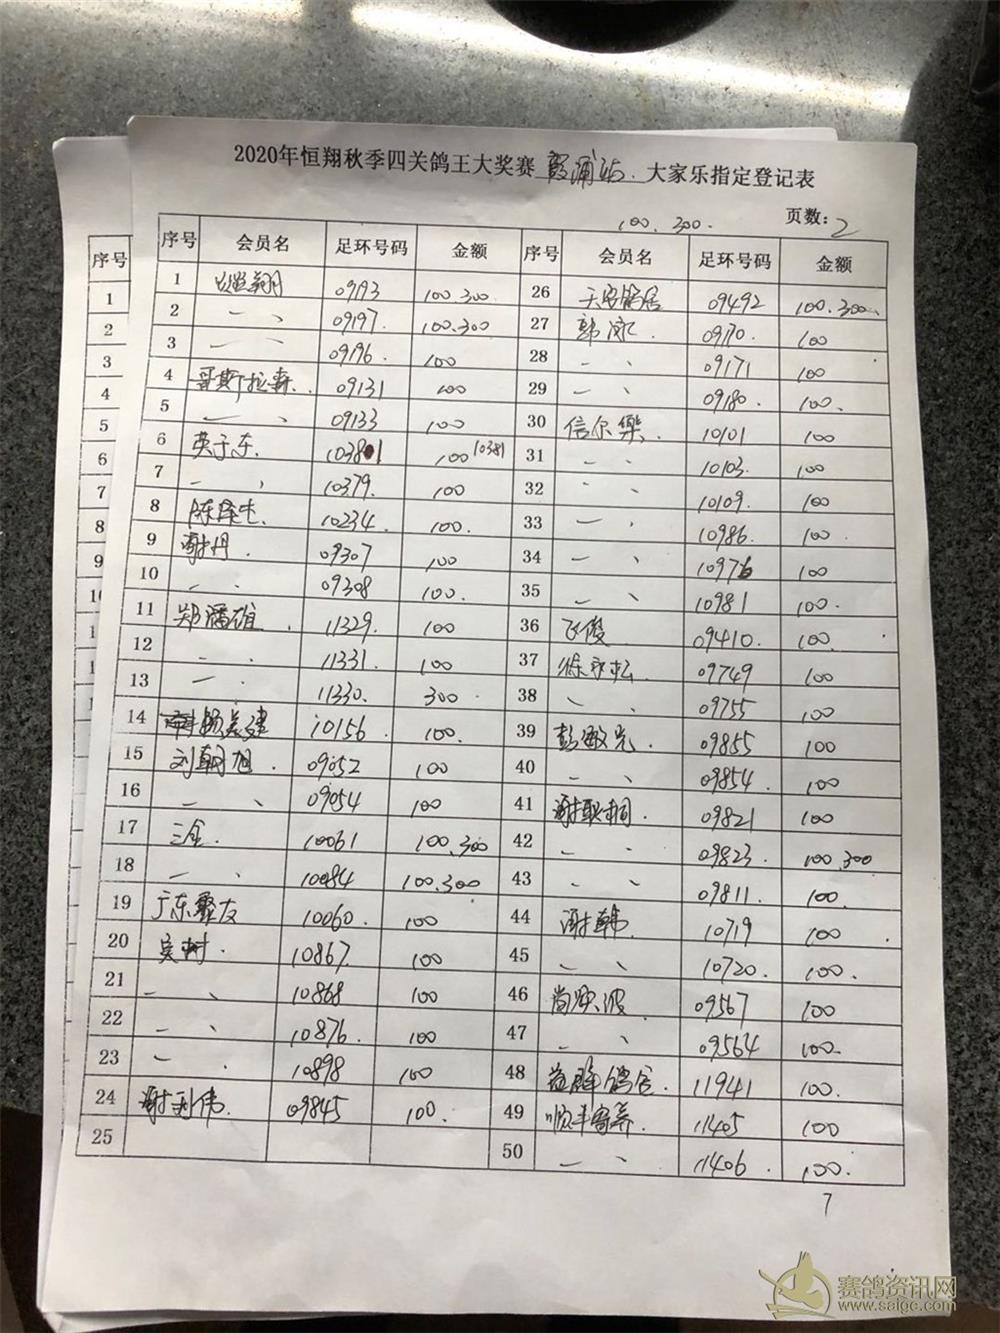 2020年恒翔秋季四关鸽王大奖赛 霞浦站. 大家乐指定登记表
100. 300. 页数: 2
序号 会员名 足环号码 金额 序号 会员名 足环号码 金额
序号
1 翔 09193 100.300 26 天 鸽居 09492 100.300
2 一 、 09197 100.300 27 韩 09170. 100
3 一 、 09196 100 28 一 、 09171 100
4 哥斯拉森. 09131 100 29 一 、 09180. 100.
5 一 、 09133 100 30 信尔乐. 10101 100
6 英于东. 10381 100 10381 31 一 、 10103. 100
7 一 、 10379. 100 32 一 、 10109. 100
8 陈泽 . 10234. 100. 33 一 、 10986. 100
9 谢丹. 09307 100 34 一 、 10976 100
10 一 、 09308 100. 35 一 、 10981 100.
11 郑 雄. 11329. 100 36 飞俊 09410. 100.
12 一 、 11331. 100 37 徐永松 09749 100
13 一 、 11330. 300 38 、 09755 100
14 杨 建 10156 100. 39 彭敏光. 09855 100
15 刘朝旭 09052 100 40 一 、 09854. 100
16 一 、 09054 100 41 谢耿桐 09821 100
17 三金. 10061 100.300 42 一 、 09823. 100.300
18 一 、 10084 100.300 43 一 、 09811 100.
19 广东 友 10060. 100 44 谢韩 10719 100
20 吴树. 10867 100 45 一 、 10720. 100.
21 一 、 10868 100 46 波 09567 100
22 一 、 10876. 100 47 一 、 09564 100.
23 一 . 10898 100 48 鸽舍 11941 100.
24 谢利伟. 09845 100. 49 顺丰寄养 11405 100
25 50 一 、 11406. 100.
1
2
3
4
5
6
7
8
9
7
赛鸽资讯网
www.saige.com